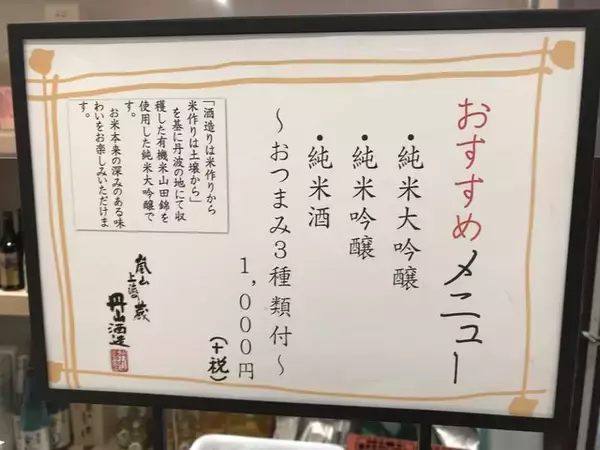 おすすめメニュー
・純米大吟醸
・純米吟醸
・純米酒
～おつまみ3種類付～
1,000円
(+税)
「酒造りは米作りから
米作りは土壌から」
を基に丹波の地にて収
穫した有機米山田錦を
使用した純米大吟醸で
す。
お米本来の深みのある味
わいをお楽しみいただけま
す。
嵐山
蔵
丹山酒造